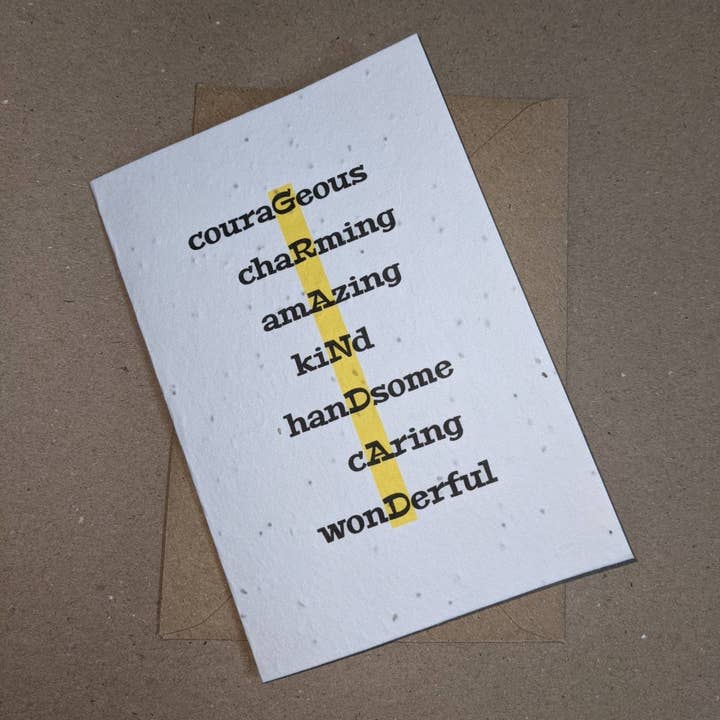 couraGeous
chaRming
amAzing
kiNd
hanDsome
cAring
wonDerful